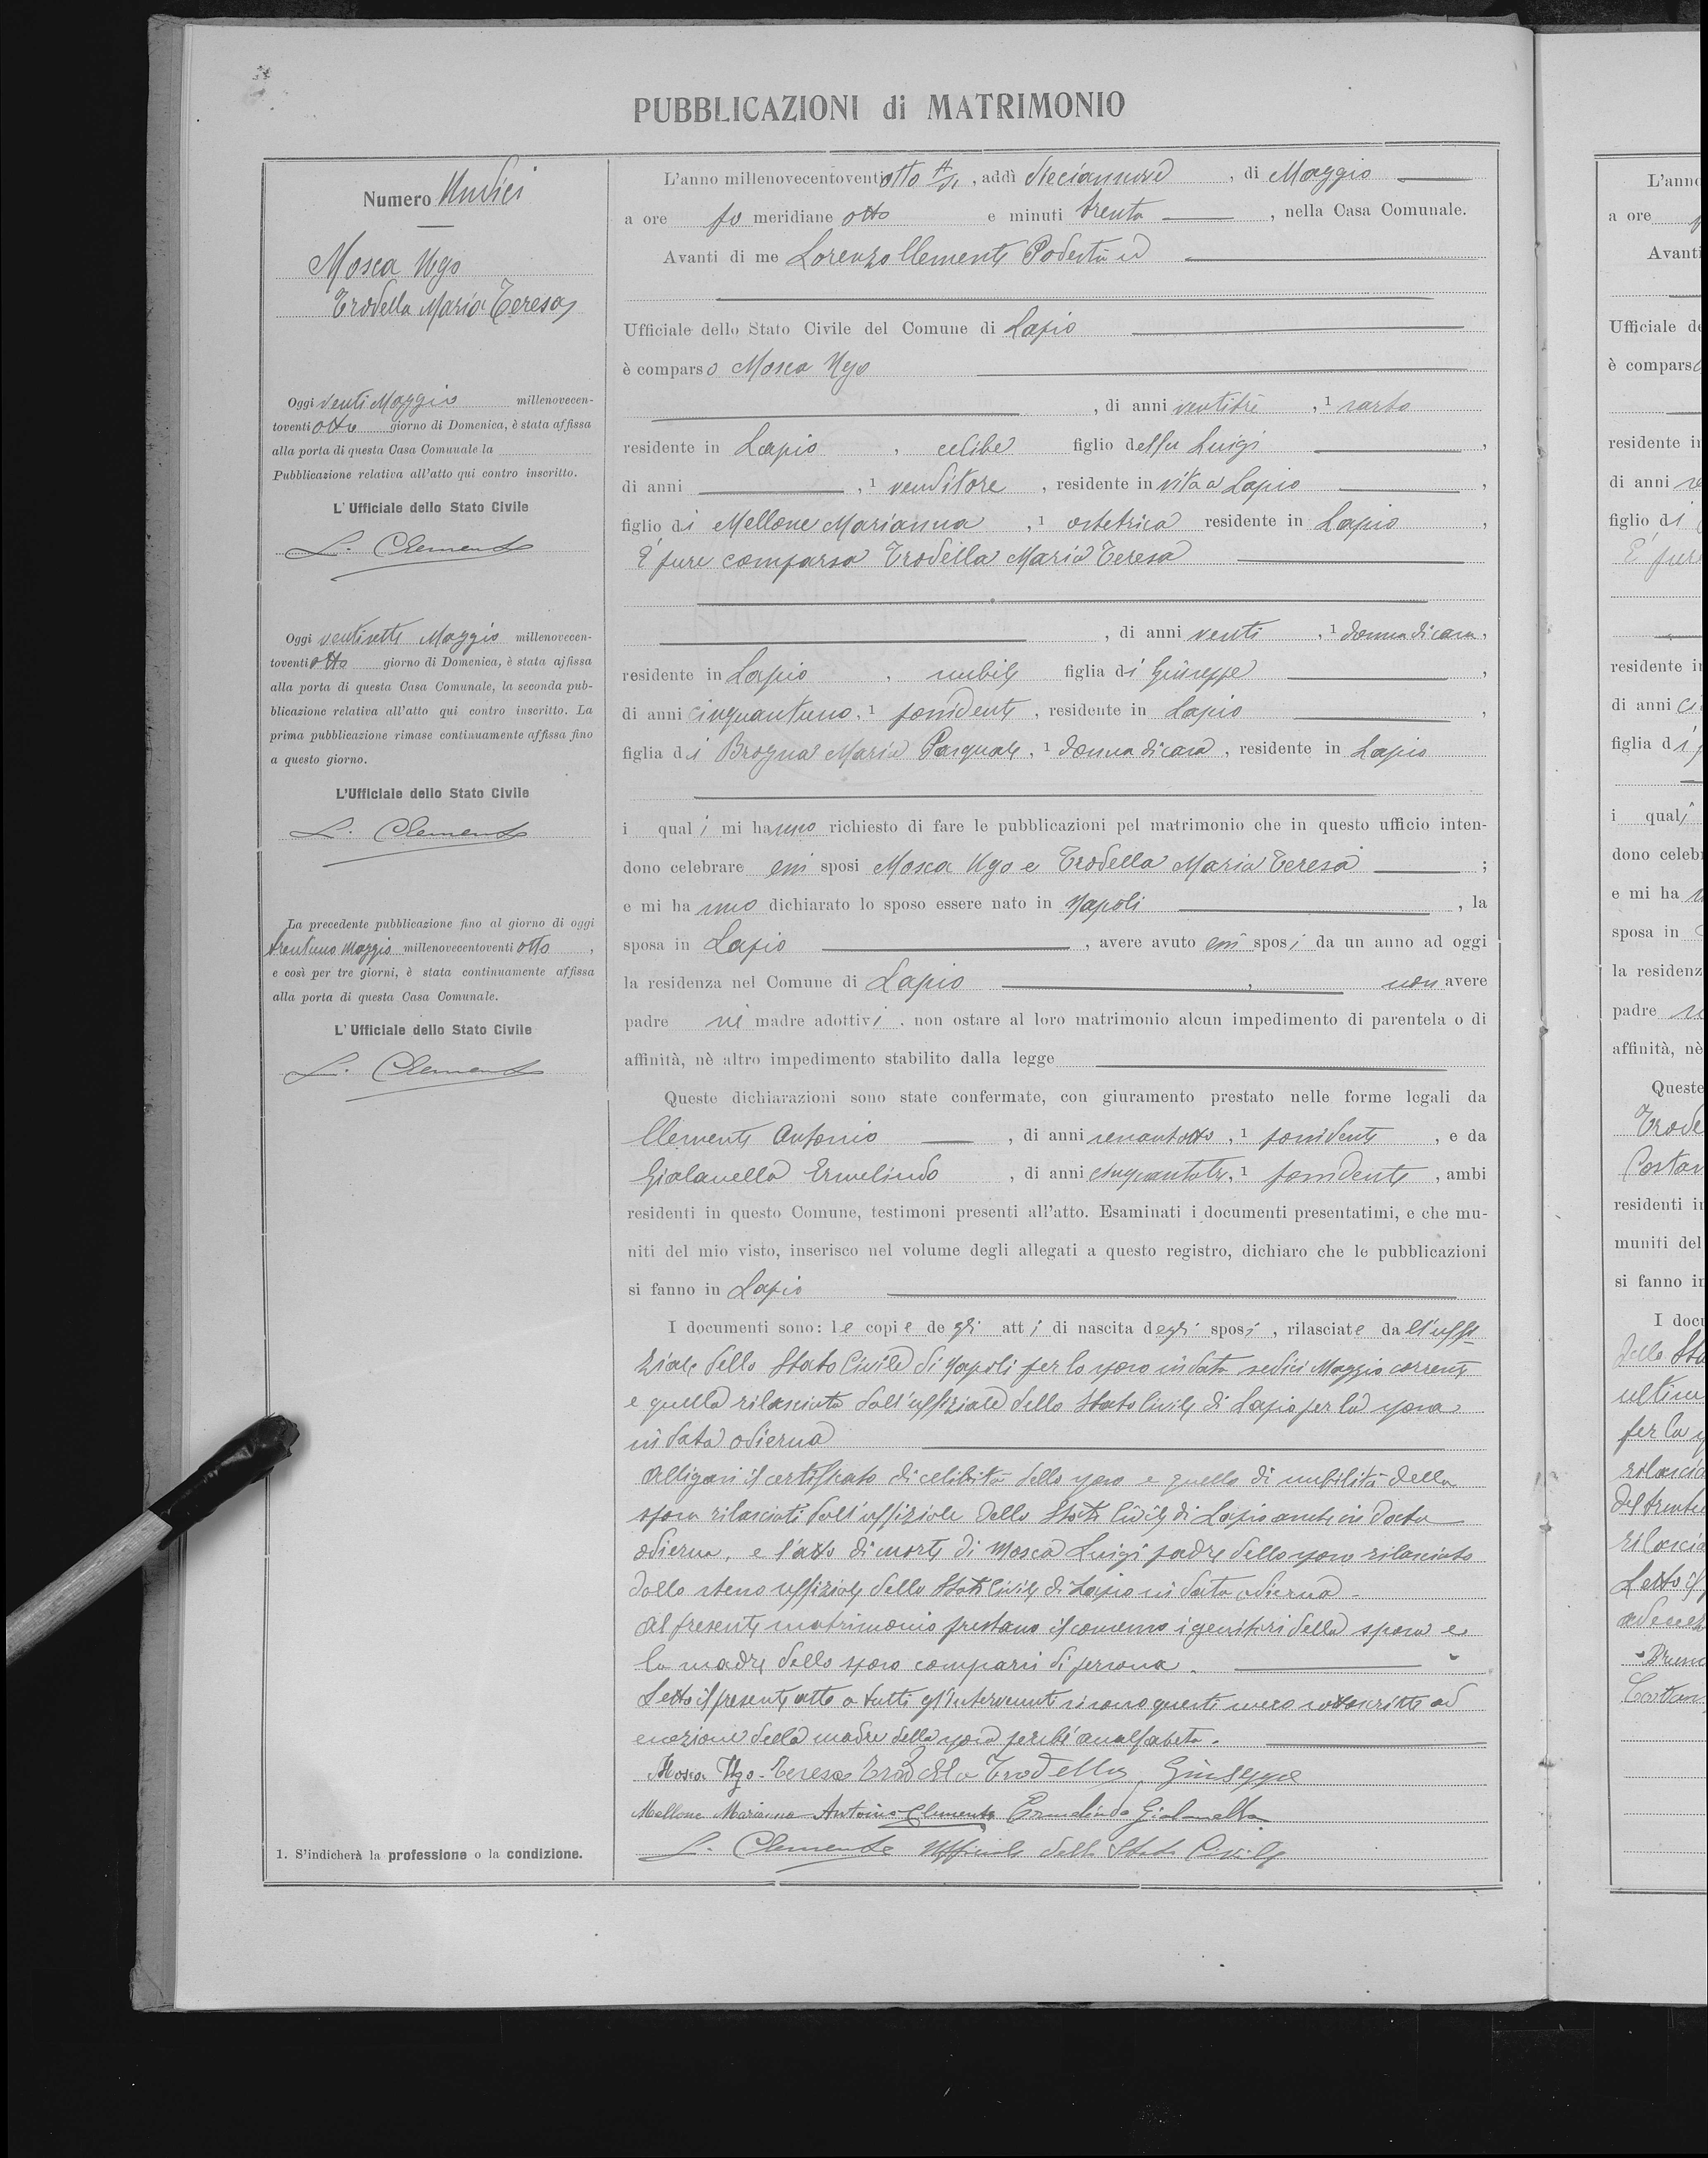 PUBBLICAZIONI di MATRIMONIO
Numero Undici
Mosca Ugo
Trodella Maria Teresa
Oggi venti Maggio millenovecen-
toventi otto giorno di Domenica, è stata affissa
alla porta di questa Casa Comunale la
Pubblicazione relativa all'atto qui contro inscritto.
L'Ufficiale dello Stato Civile
L. Clemente
Oggi ventisette Maggio millenovecen-
toventi otto giorno di Domenica, è stata affissa
alla porta di questa Casa Comunale, la seconda pub-
blicazione relativa all'atto qui contro inscritto. La
prima pubblicazione rimase continuamente affissa fino
a questo giorno.
L'Ufficiale dello Stato Civile
L. Clemente
La precedente pubblicazione fino al giorno di oggi
trentuno Maggio millenovecentoventi otto,
e così per tre giorni, è stata continuamente affissa
alla porta di questa Casa Comunale.
L'Ufficiale dello Stato Civile
L. Clemente
1. S'indicherà la professione o la condizione.
L'anno millenovecentoventi otto, addì diciannove, di Maggio
a ore po meridiane otto e minuti trenta, nella Casa Comunale.
Avanti di me Lorenzo Clemente Podestà ed
Ufficiale dello Stato Civile del Comune di Lapio
è comparso Mosca Ugo
, di anni ventitrè, 1 sarto
residente in Lapio, celibe figlio del fu Luigi,
di anni , 1 venditore, residente in vita a Lapio,
figlio di Mellone Marianna, 1 ostetrica residente in Lapio,
È pure comparsa Trodella Maria Teresa
, di anni venti, 1 donna di casa,
residente in Lapio, nubile figlia di Giuseppe,
di anni cinquantuno, 1 possidente, residente in Lapio,
figlia di Brogna Maria Pasquale, 1 donna di casa, residente in Lapio
i quali mi hanno richiesto di fare le pubblicazioni pel matrimonio che in questo ufficio inten-
dono celebrare essi sposi Mosca Ugo e Trodella Maria Teresa;
e mi hanno dichiarato lo sposo essere nato in Napoli, la
sposa in Lapio, avere avuto essi sposi da un anno ad oggi
la residenza nel Comune di Lapio, non avere
padre nè madre adottivi, non ostare al loro matrimonio alcun impedimento di parentela o di
affinità, nè altro impedimento stabilito dalla legge
Queste dichiarazioni sono state confermate, con giuramento prestato nelle forme legali da
Clemente Antonio, di anni, 1 possidente, e da
Gialanella Ermelindo, di anni cinquantatre, 1 possidente, ambi
residenti in questo Comune, testimoni presenti all'atto. Esaminati i documenti presentatimi, e che mu-
niti del mio visto, inserisco nel volume degli allegati a questo registro, dichiaro che le pubblicazioni
si fanno in Lapio
I documenti sono: le copie degli atti di nascita degli sposi, rilasciate dall'uffi-
ziale dello Stato Civile di Napoli per lo sposo in data sedici Maggio corrente
e quella rilasciata dall'uffiziale dello Stato Civile di Lapio per la sposa
in data odierna
Alligasi il certificato di celibità dello sposo e quello di nubilità della
sposa rilasciati dall'uffiziale dello Stato Civile di Lapio anche in data
odierna, e l'atto di morte di Mosca Luigi padre dello sposo rilasciato
dallo stesso uffiziale dello Stato Civile di Lapio in data odierna.
Al presente matrimonio prestano il consenso i genitori della sposa e
la madre dello sposo comparsi di persona.
Letto il presente atto a tutti gl'intervenuti si sono questi meco sottoscritti ad
eccezione della madre della sposa perchè analfabeta.
Mosca Ugo - Teresa Trodella Trodella Giuseppe
Mellone Marianna Antonio Clemente Ermelindo Gialanella
L. Clemente Ufficiale dello Stato Civile
L'anno
a ore
Avanti
Ufficiale de
è comparso
residente in
di anni
figlio di
È pure
residente in
di anni
figlia di
i quali
dono celebr
e mi ha
sposa in
la residenz
padre
affinità, nè
Queste
Trode
residenti in
muniti del
si fanno in
I docu
dello Sta
per la